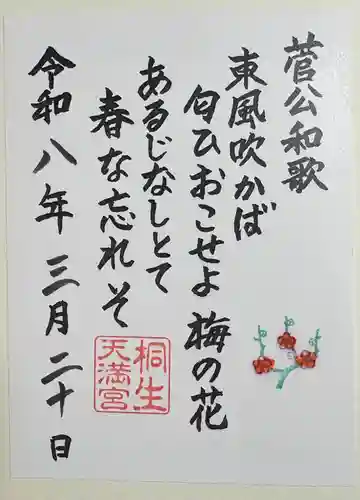 菅公和歌
東風吹かば
匂ひおこせよ 梅の花
あるじなしとて
春な忘れそ
令和八年 三月二十日
桐生
天満宮